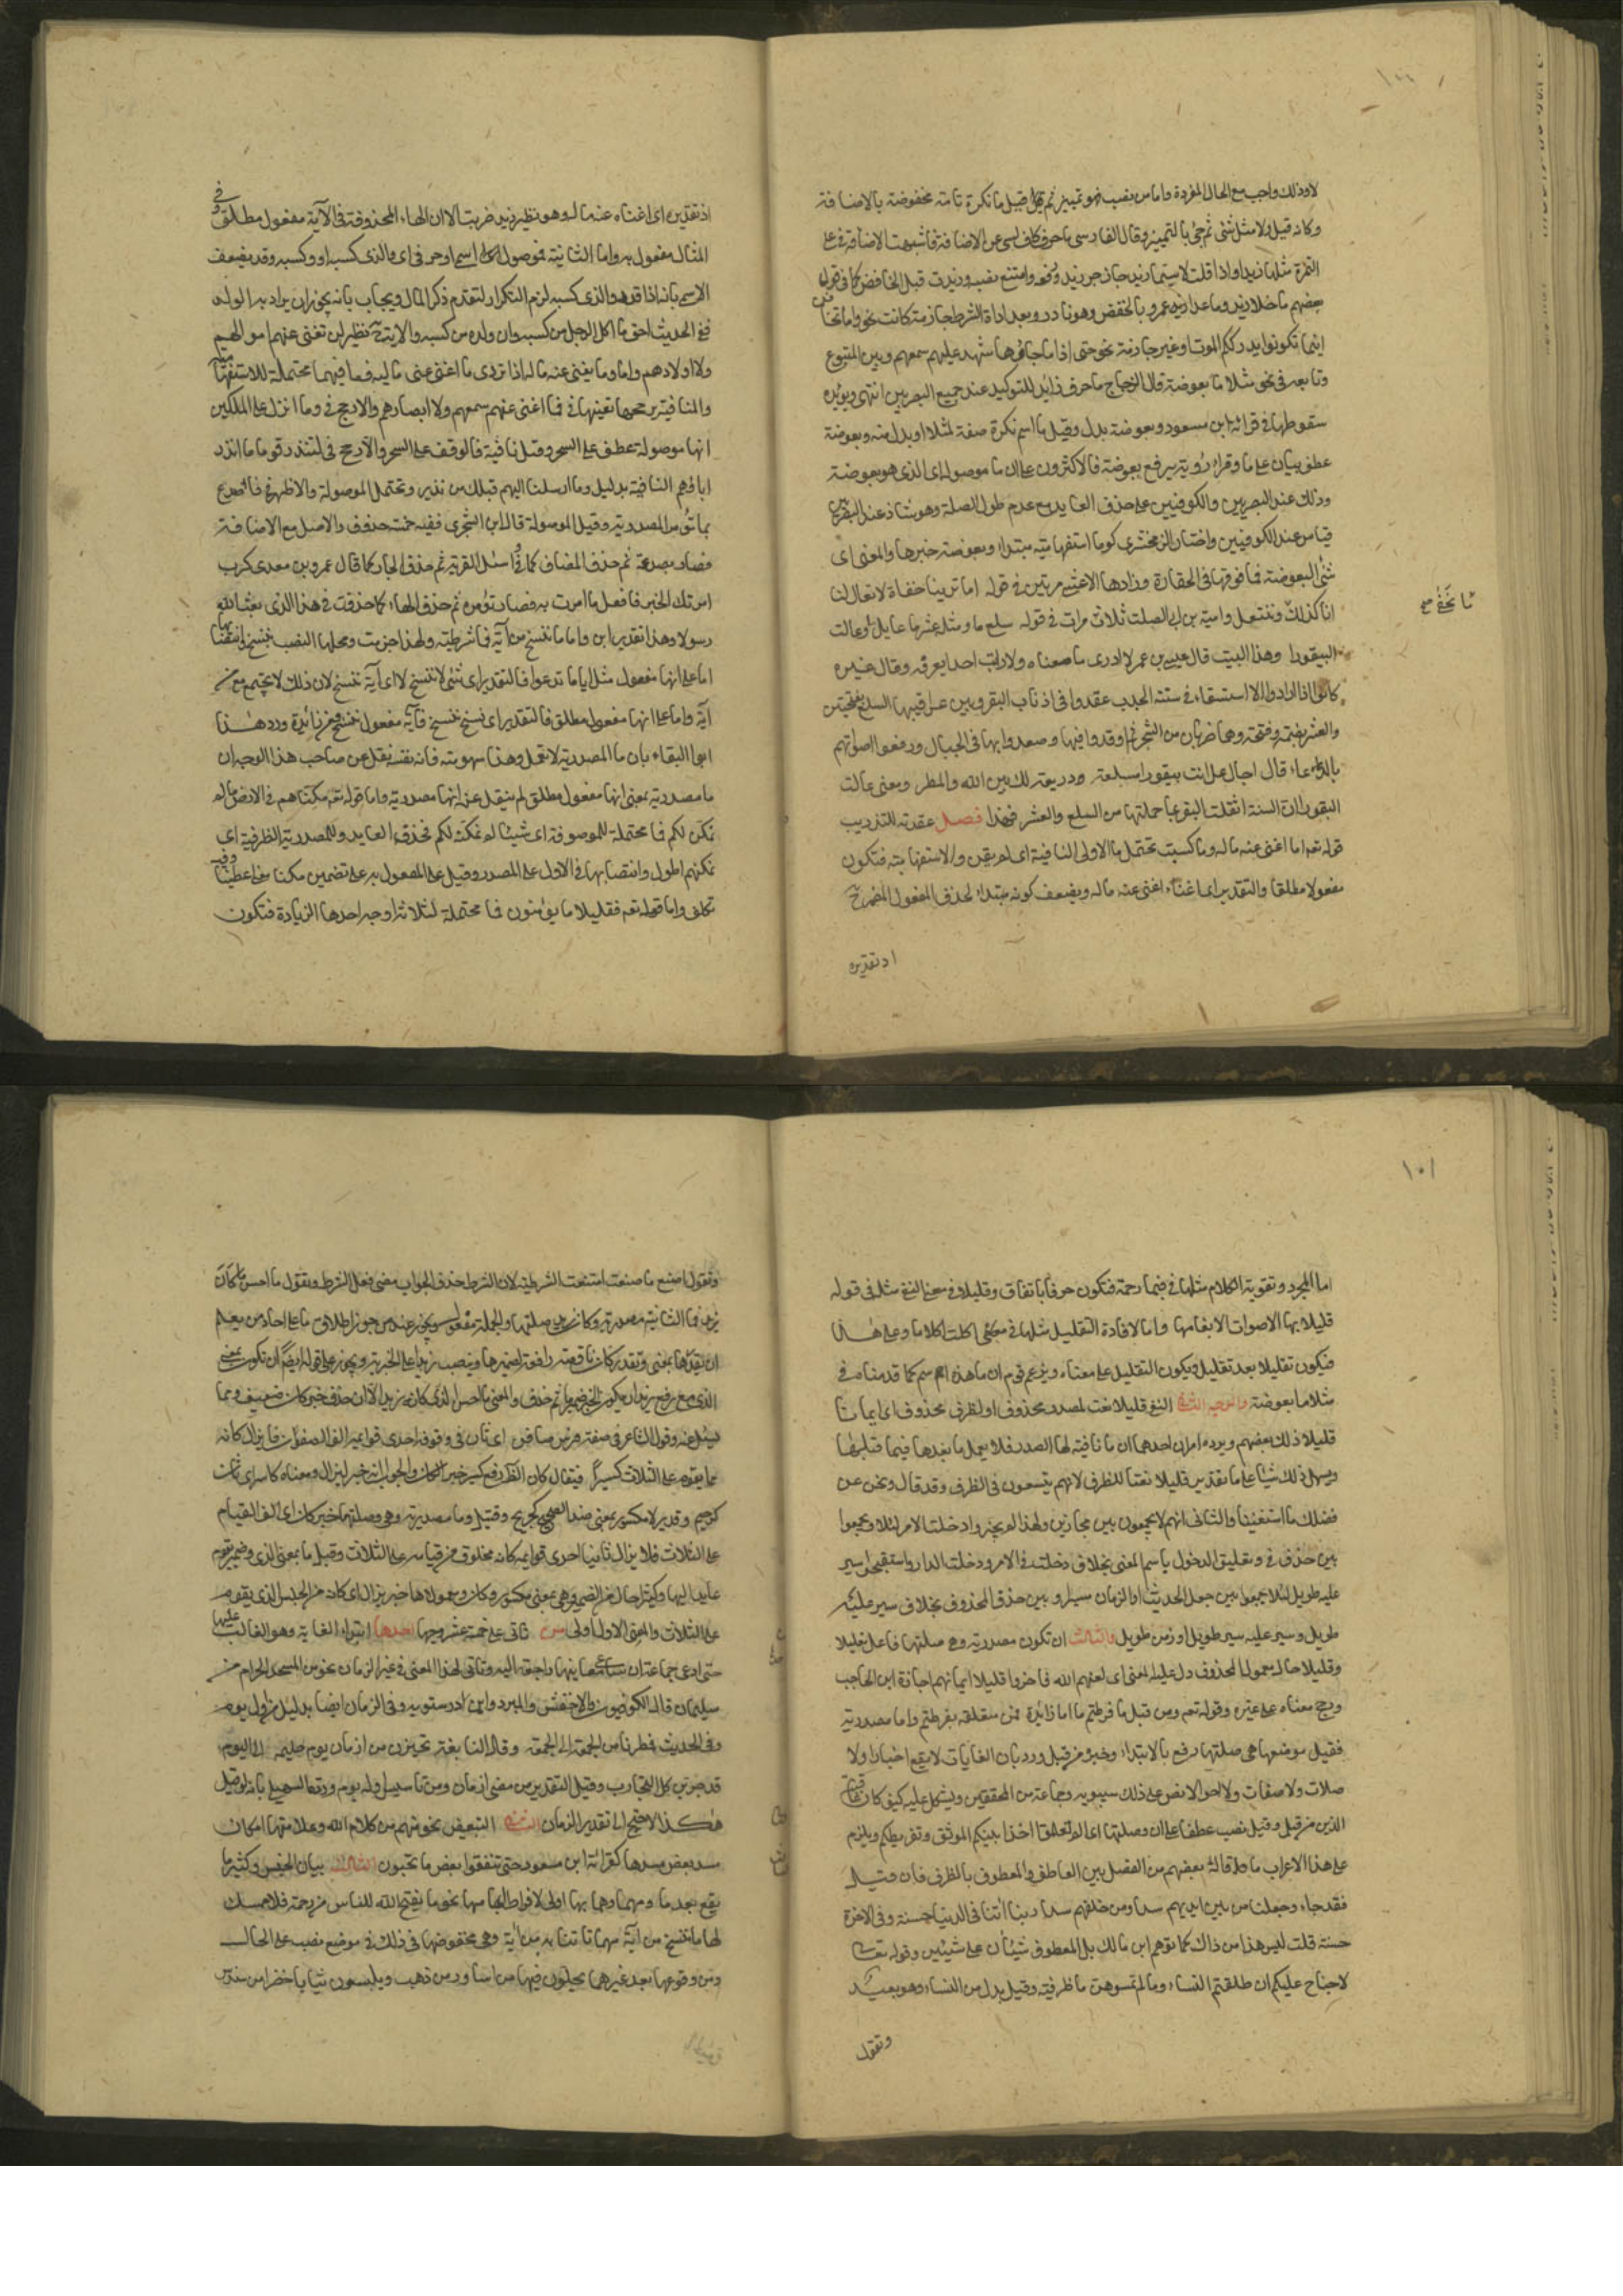 ١٠٠
لا وذلك واجب مع الحال المفردة واما من نصب فهو تمييز ثم قيل قيل ما نكرة تامة مخفوضة بالاضافة
وكانه قيل ولا مثل شئ ثم جئ بالتمييز وقال الفارسى ما حرف كاف لسى عن الاضافة فاشبهت الاضافة فى على
التمرة مثلها زيدا واذا قلت لا سيما زيد جاز جر زيد ورفعه وامتنع نصبه وزيدت قبل الخافض كما فى قول
بعضهم ما خلا زيد وما عدا زيد عمرو بالخفض وهو نادر وبعد اداة الشرط جازمة كانت نحو واما تخافن
اينما تكونوا يدرككم الموت او غير جازمة نحو حتى اذا ما جاؤها شهد عليهم سمعهم وبين المتبوع
وتابعه فى نحو مثلا ما بعوضة قال الزجاج ما حرف زائد للتوكيد عند جميع البصريين انتهى ويؤيده
سقوطها فى قرائة ابن مسعود وبعوضة بدل وقيل ما اسم نكرة صفة لمثلا او بدل منه وبعوضة
عطف بيان على ما وقراء رؤبة برفع بعوضة فالاكثرون على ان ما موصولة اى الذى هو بعوضة
وذلك عند البصريين والكوفيين على حذف العايد مع عدم طول الصلة وهو شاذ عند البصريين
قياس عند الكوفيين واختار الزمخشرى كون ما استفهامية مبتداء وبعوضة خبرها والمعنى اى
شئ البعوضة فما فوقها فى الحقارة وزادها الاعشى مرتين فى قوله اما ترينا حفاة لا نعال لنا
انا كذلك وننتعل وامية بن ابى الصلت ثلاث مرات فى قوله سلع ما ومثله عشر ما عايل ما وعالت
البيقورا وهذا البيت قال عيسى بن عمر لا ادرى ما معناه ولا رايت احدا يعرفه وقال غيره
كانوا اذا ارادوا الاستسقاء فى سنة الجدب عقدوا فى اذناب البقر وبين عراقيبها السلع بفتحتين
والعشر بضمة وفتحة وهما ضربان من الشجر ثم اوقدوا فيها وصعدوا بها فى الجبال ورفعوا اصواتهم
بالدعاء قال اجاعل انت بيقورا مسلعة وذريعة لك بين الله والمطر ومعنى عالت
البقور ان السنة اثقلت البقر بما حملتها من السلع والعشر فهذا فصل عقدته للتدريب
قوله تعم ما اغنى عنه ماله وما كسبت تحتمل ما الاولى النافية اى لم يغن والاستفهامية فتكون
مفعولا مطلقا والتقدير اى اغناء اغنى عنه ماله ويضعف كونه مبتداء لحذف المفعول المضمر ح
اذ تقديره
اذ تقديره اى اغناه عنه ماله وهو نظير زيد ضربت الا ان الهاء المحذوفة فى الآية مفعول مطلق وفى
المثال مفعول به واما الثانية فموصول اسمى او حرفى اى والذى كسبه او وكسبه وقد يضعف
الاسم بانه اذا قدر والذى كسبه لزم التكرار لتقدم ذكر المال ويجاب بانه يجوز ان يراد به الولد
ففى الحديث احق ما اكل الرجل من كسبه وان ولده من كسبه والاية ح نظير لن تغنى عنهم اموالهم
ولا اولادهم واما وما يغنى عنه ماله اذا تردى ما اغنى عنى ماليه فما فيهما محتملة للاستفهامية
والنافية يرجحها تعينها فى فما اغنى عنهم سمعهم ولا ابصارهم والارجح فى وما انزل على الملكين
انها موصولة عطف على السحر وقيل نافية فالوقف على السحر والارجح فى لتنذر قوما ما انذر
اباؤهم النافية بدليل وما ارسلنا اليهم قبلك من نذير وتحتمل الموصولة والاظهر فى فاصدع
بما تؤمر المصدرية وقيل الموصولة قال ابن الشجرى ففيه خمسة حذوف والاصل مع الاضافة
فصار بصدعه ثم حذف المضاف كما فى واسئل القرية ثم حذف الجار كما قال عمرو بن معدى كرب
امرتك الخير فافعل ما امرت به فصار تؤمره ثم حذف الهاء كما حذفت فى هذا الذى بعث الله
رسولا وهذا تقدير ابن واما ما ننسخ من آية فما شرطية ولهذا جزمت ومحلها النصب بننسخ وانتصابها
اما على انها مفعول مثل ايا ما تدعوا فالتقدير اى شئ ننسخ لا اى آية ننسخ لان ذلك لا يجتمع مع من
آية واما على انها مفعول مطلق فالتقدير اى نسخ ننسخ فآية مفعول ننسخ ومن زائدة ورد هذا
ابو البقاء بان ما المصدرية لا تعمل وهذا سهو منه فانه نفسه نقل عن صاحب هذا الوجه ان
ما مصدرية بمعنى انها مفعول مطلق لم ينقل عنه انها مصدرية واما قوله تعم مكناهم فى الارض ما لم
نمكن لكم فما محتملة للموصوفة اى شيئا لم نمكنه لكم فحذف العايد وللمصدرية الظرفية اى
نمكنهم اطول وانتصابها فى الاول على المصدر وقيل على المفعول به على تضمين مكنا معنى اعطينا وفيه
تكلف واما قوله تعم فقليلا ما يؤمنون فما محتملة لثلاثة اوجه احدها الزيادة فتكون
١٠١
اما لمجرد تقوية الكلام مثلها فى فبما رحمة فتكون حرفا باتفاق وقليلا فى معنى النفى مثله فى قوله
قليلا بها الاصوات الا بغامها واما لافادة التقليل مثلها فى اكلت اكلا ما وعلى هذا
فيكون تقليلا بعد تقليل ويكون التقليل على معناه ويزعم قوم ان ما هذه اسم كما قدمناه فى
مثلا ما بعوضة والوجه الثانى النفى قليلا نعت لمصدر محذوف او لظرف محذوف اى ايمانا
قليلا ذلك بعضهم ويرده امران احدهما ان ما نافية لها الصدر فلا يعمل ما بعدها فيما قبلها
ويسهل ذلك شيئا على ما تقدير قليلا نعتا للظرف لانهم يتسعون فى الظرف وقد قال ونحن عن
فضلك ما استغنينا والثانى انهم لا يجمعون بين مجازين ولهذا لم يجيزوا دخلت الامر لئلا يجمعوا
بين حذف فى وتعليق الدخول باسم المعنى بخلاف دخلت فى الامر ودخلت الدار واستقبحوا سير
عليه طويل لئلا يجمعوا بين جعل الحدث او الزمان سيرا وبين حذف المحذوف بخلاف سير عليه
طويل وسير عليه سير طويل او زمن طويل والثالث ان تكون مصدرية وهى صلتها فاعل بقليلا
وقليلا حال معمول لمحذوف دل عليه المعنى اى لعنهم الله فاخروا قليلا ايمانهم اجازه ابن الحاجب
ورجح معناه على غيره وقوله تعم ومن قبل ما فرطتم ما اما زائدة فمن متعلقة بفرطتم واما مصدرية
فقيل موضعها هى صلتها رفع بالابتداء وخبره من قبل ورد بان الغايات لا يقع اخبارا ولا
صلات ولا صفات ولا احوالا نص على ذلك سيبويه وجماعة من المحققين ويشكل عليه كيف كان عاقبة
الذين من قبل وقيل نصب عطفا على ان وصلتها اى الم تعلموا اخذ ابيكم الموثق وتفريطكم ويلزم
على هذا الاعراب ما قاله بعضهم من الفصل بين العاطف والمعطوف بالظرف فان قيل
فقد جاء وجعلنا من بين ايديهم سدا ومن خلفهم سدا ربنا آتنا فى الدنيا حسنة وفى الاخرة
حسنة قلت ليس هذا من ذاك كما توهم ابن مالك بل المعطوف شيئان على شيئين وقوله تعالى
لا جناح عليكم ان طلقتم النساء وما لم تمسوهن ما ظرفية وقيل بدل من النساء وهو بعيد
وتقول
وتقول اصنع ما صنعت امتنعت الشرطية لان الشرط حذف الجواب مضى فعل الشرط وتقول ما احسن ما كان
زيد فما الثانية مصدرية وكان زيد صلتها والجملة مفعول ويجوز عند من جوز اطلاق ما على احاد من يعلم
ان يقدرها بمعنى وتقدر كان ناقصة رافعة لضميرها وينصب زيدا على الخبرية ويجوز على قوله ايضا ان تكون بمعنى
الذى مع رفع زيد ان يكون الخبر ضميرا ثم حذف والمعنى ما احسن الذى كانه زيد الا ان حذف خبر كان ضعيف ومما
يسئل عنه وقول الشاعر فى صفة فرس صافن اى ثان فى وقوفه احدى قوايمه الف الصفون فما يزال كانه
مما يقوم على الثلاث كسيرا فيقال كان الظاهر رفع كسير خبرا لكان والجواب انه خبر ليزال ومعناه كاسر اى ثان
كرحيم وقدير لا مكسور بمعنى ضد الصحيح كجريح وقتيل وما مصدرية وهى وصلتها خبر كان اى الف القيام
على الثلاث فلا يزال ثانيا احدى قوايمه كانه مخلوق من قيامه على الثلاث وقيل ما بمعنى الذى وضمير يقوم
عايد اليها وكسيرا حال من الضمير وهى بمعنى مكسور وكان ومعمولاها خبر يزال اى كانه من الجنس الذى يقوم
على الثلاث والمعنى الاول اولى من تاتى على خمسة عشر وجها احدها ابتداء الغاية وهو الغالب عليها
حتى ادعى جماعة ان ساير معانيها راجعة اليه وتاتى لهذا المعنى فى غير الزمان نحو من المسجد الحرام من
سليمان قال الكوفيون والاخفش والمبرد وابن درستويه وفى الزمان ايضا بدليل من اول يوم
وفى الحديث فمطرنا من الجمعة الى الجمعة وقال النابغة تخيرن من ازمان يوم حليمة الى اليوم
قد جربن كل التجارب وقيل التقدير من مضى ازمان ومن تاسيس اول يوم ورده السهيلى بانه لو قيل
هكذا لاحتيج الى تقدير الزمان الثانى التبعيض نحو منهم من كلم الله وعلامتها امكان
سد بعض مسدها كقرائة ابن مسعود حتى تنفقوا بعض ما تحبون الثالث بيان الجنس وكثيرا ما
يقع بعد ما ومهما وهما بها اولى لافراط ابهامها نحو ما يفتح الله للناس من رحمة فلا ممسك
لها ما ننسخ من آية مهما تاتنا به من آية وهى مخفوضها فى ذلك فى موضع نصب على الحال
ومن وقوعها بعد غيرهما يحلون فيها من اساور من ذهب ويلبسون ثيابا خضرا من سندس